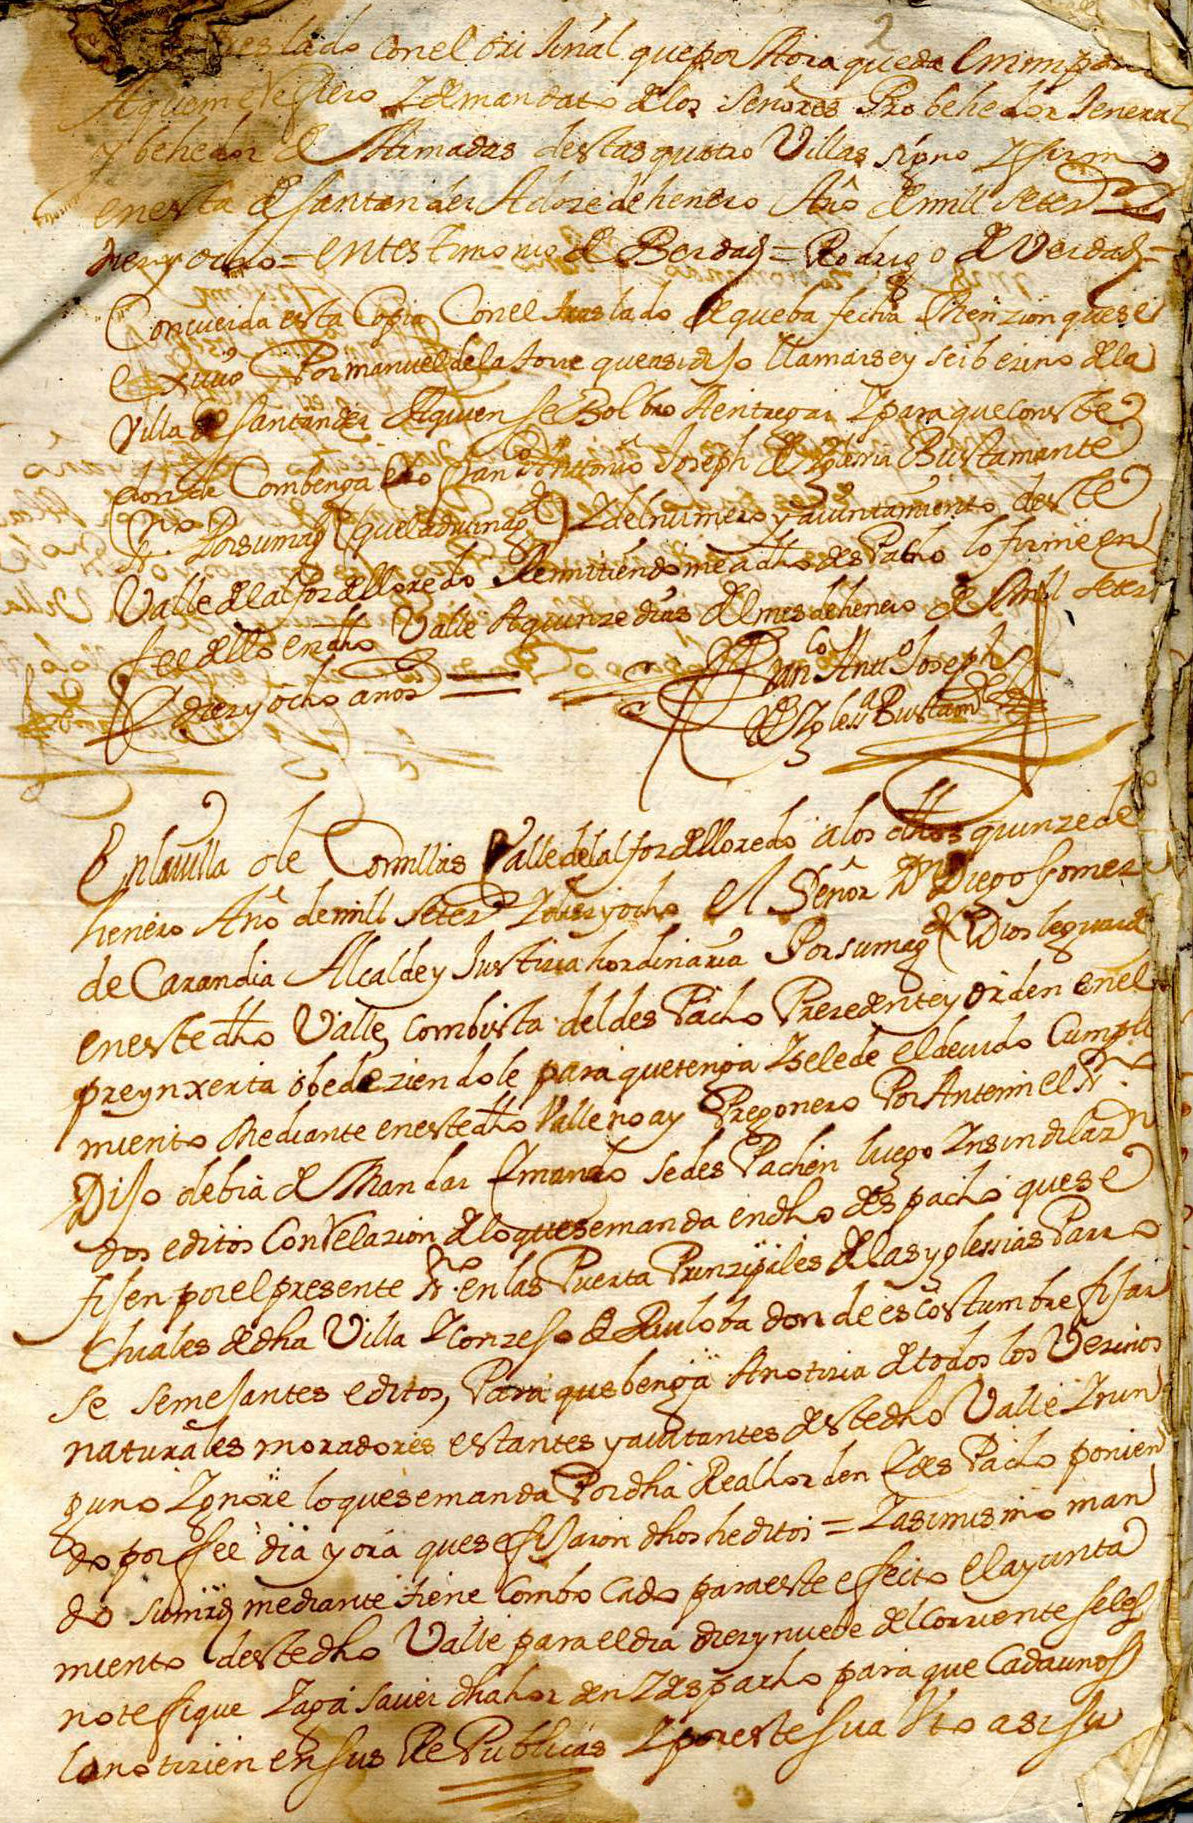 2
traslado con el orijinal que por aora queda en mi poder
a que me Refiero y de mandato de los Señores Probehedor Jeneral
y behedor de Armadas destas quatro Villas signo y firmo
en esta de Santander a doze de henero Año de mill setez.os
diez y ocho = en testimonio de Berdad = Rodrigo de Verdad =
Concuerda esta Copia Con el traslado de que ba fecha Menzion que se
exivio Por manuel de la torre que asi dijo llamarse y ser bezino de la
Villa de Santander Aquien se Bolbio A entregar y para que conste
donde Combenga Yo Fran.co Antonio Joseph de Yglesia Bustamante
ss.no Por su mag.d (que Dios g.de) y del numero y aiuntamiento deste
Valle de alfoz de lloredo Remitiendome a dho desPacho lo firmé en
fee dello en dho Valle A quinze dias del mes de henero de Mill setez.os
diez y ocho anos =
Fran.co Ant.o Joseph
de Yglessia Bustam.te
En la uilla de Comillas Valle de alfoz de lloredo a los dhos quinze de
henero Año de mill setez.os y diez y ocho el Señor Dn Diego Gomez
de Carandia Alcalde y Justizia hordinaria Por su mag.d (Dios le guarde
en este dho Valle, com bista del desPacho Prezedente y orden en el
preynxerta obedeziendole para que tenga y se le de el deuido Cumpli
miento Mediante en este dho Valle no ay Pregonero Por Antemi el ss.no
Dijo debia de Mandar y mando se desPachen luego
dos editos Con Relazion de lo que se manda en dho despacho que se
fijen por el presente ss.no en las Puerta Prinzipales de las yglessias Parro
chiales de dha Villa y Conzejo de Ruiloba donde es costumbre fijar
se semejantes editos, Para que benga A notizia de todos los Vezinos
naturales moradores estantes y auitantes deste dho Valle y nin
guno Ygnore lo que se manda Por dha Real horden y desPacho ponien
do por fee dia y ora que se fijaron dhos heditos = Y asimismo man
do su mrd mediante tiene Combocado para este efecto el ayunta
miento deste dho Valle para el dia diez y nuebe del corriente se les
notefique y aga sauer dha horden y desPacho para que Cada uno
lo notizien en sus RePublicas y por este su auto asi su